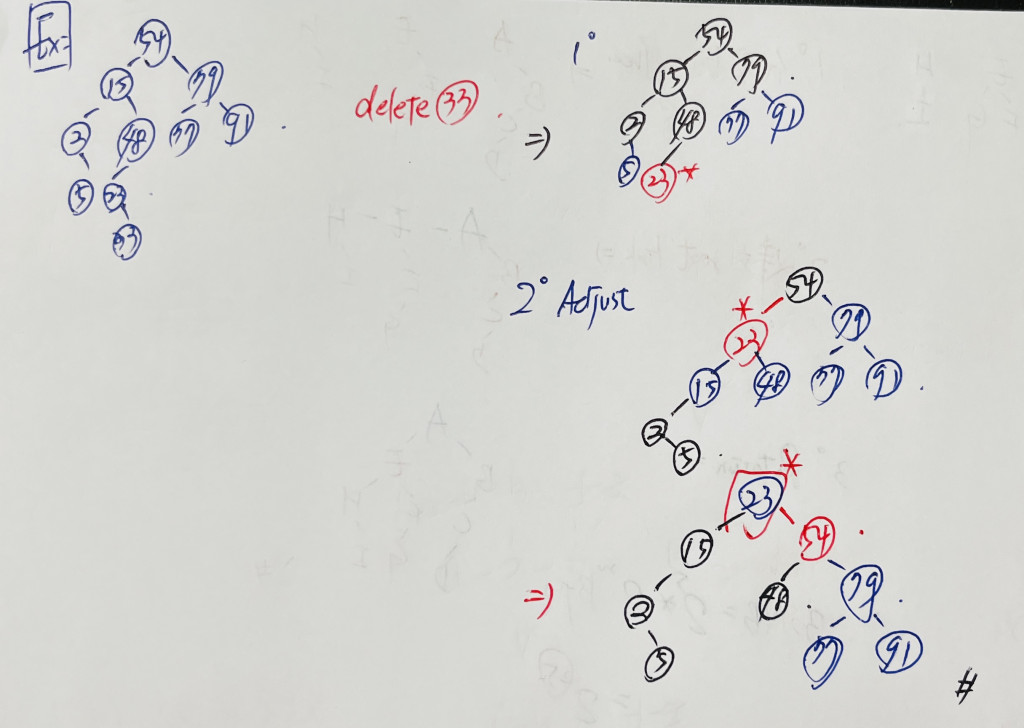 Ex:
54
15 79
3 48 77 91
5 23
33
delete 33.
⇒
1°
54
15 79
3 48 77 91
5 23 *
2° Adjust
54
* 23 79
15 48 77 91
3
5
⇒
23 *
15 54
3 48 79
5 77 91
#